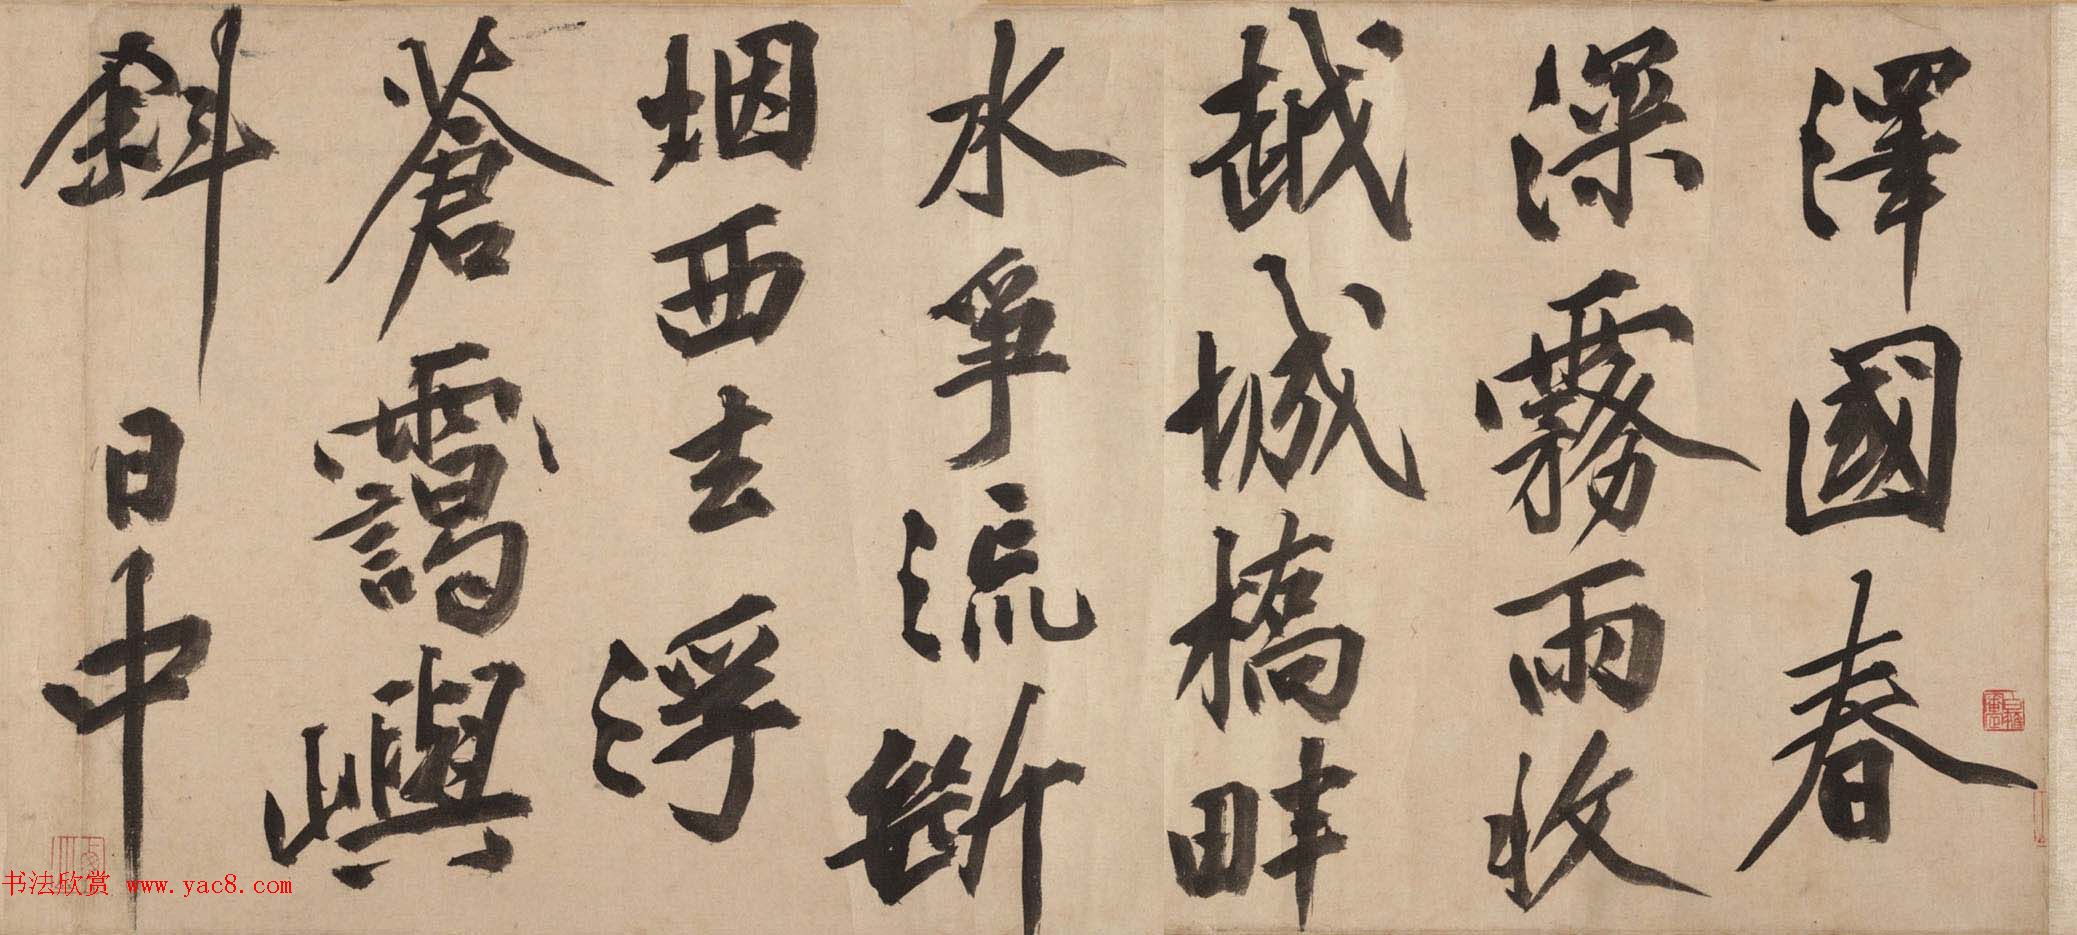 澤國春
深霧雨收
越城橋畔
水爭流斷
烟西去浮
蒼靄嶼
斜日中
书法欣赏 www.yac8.com